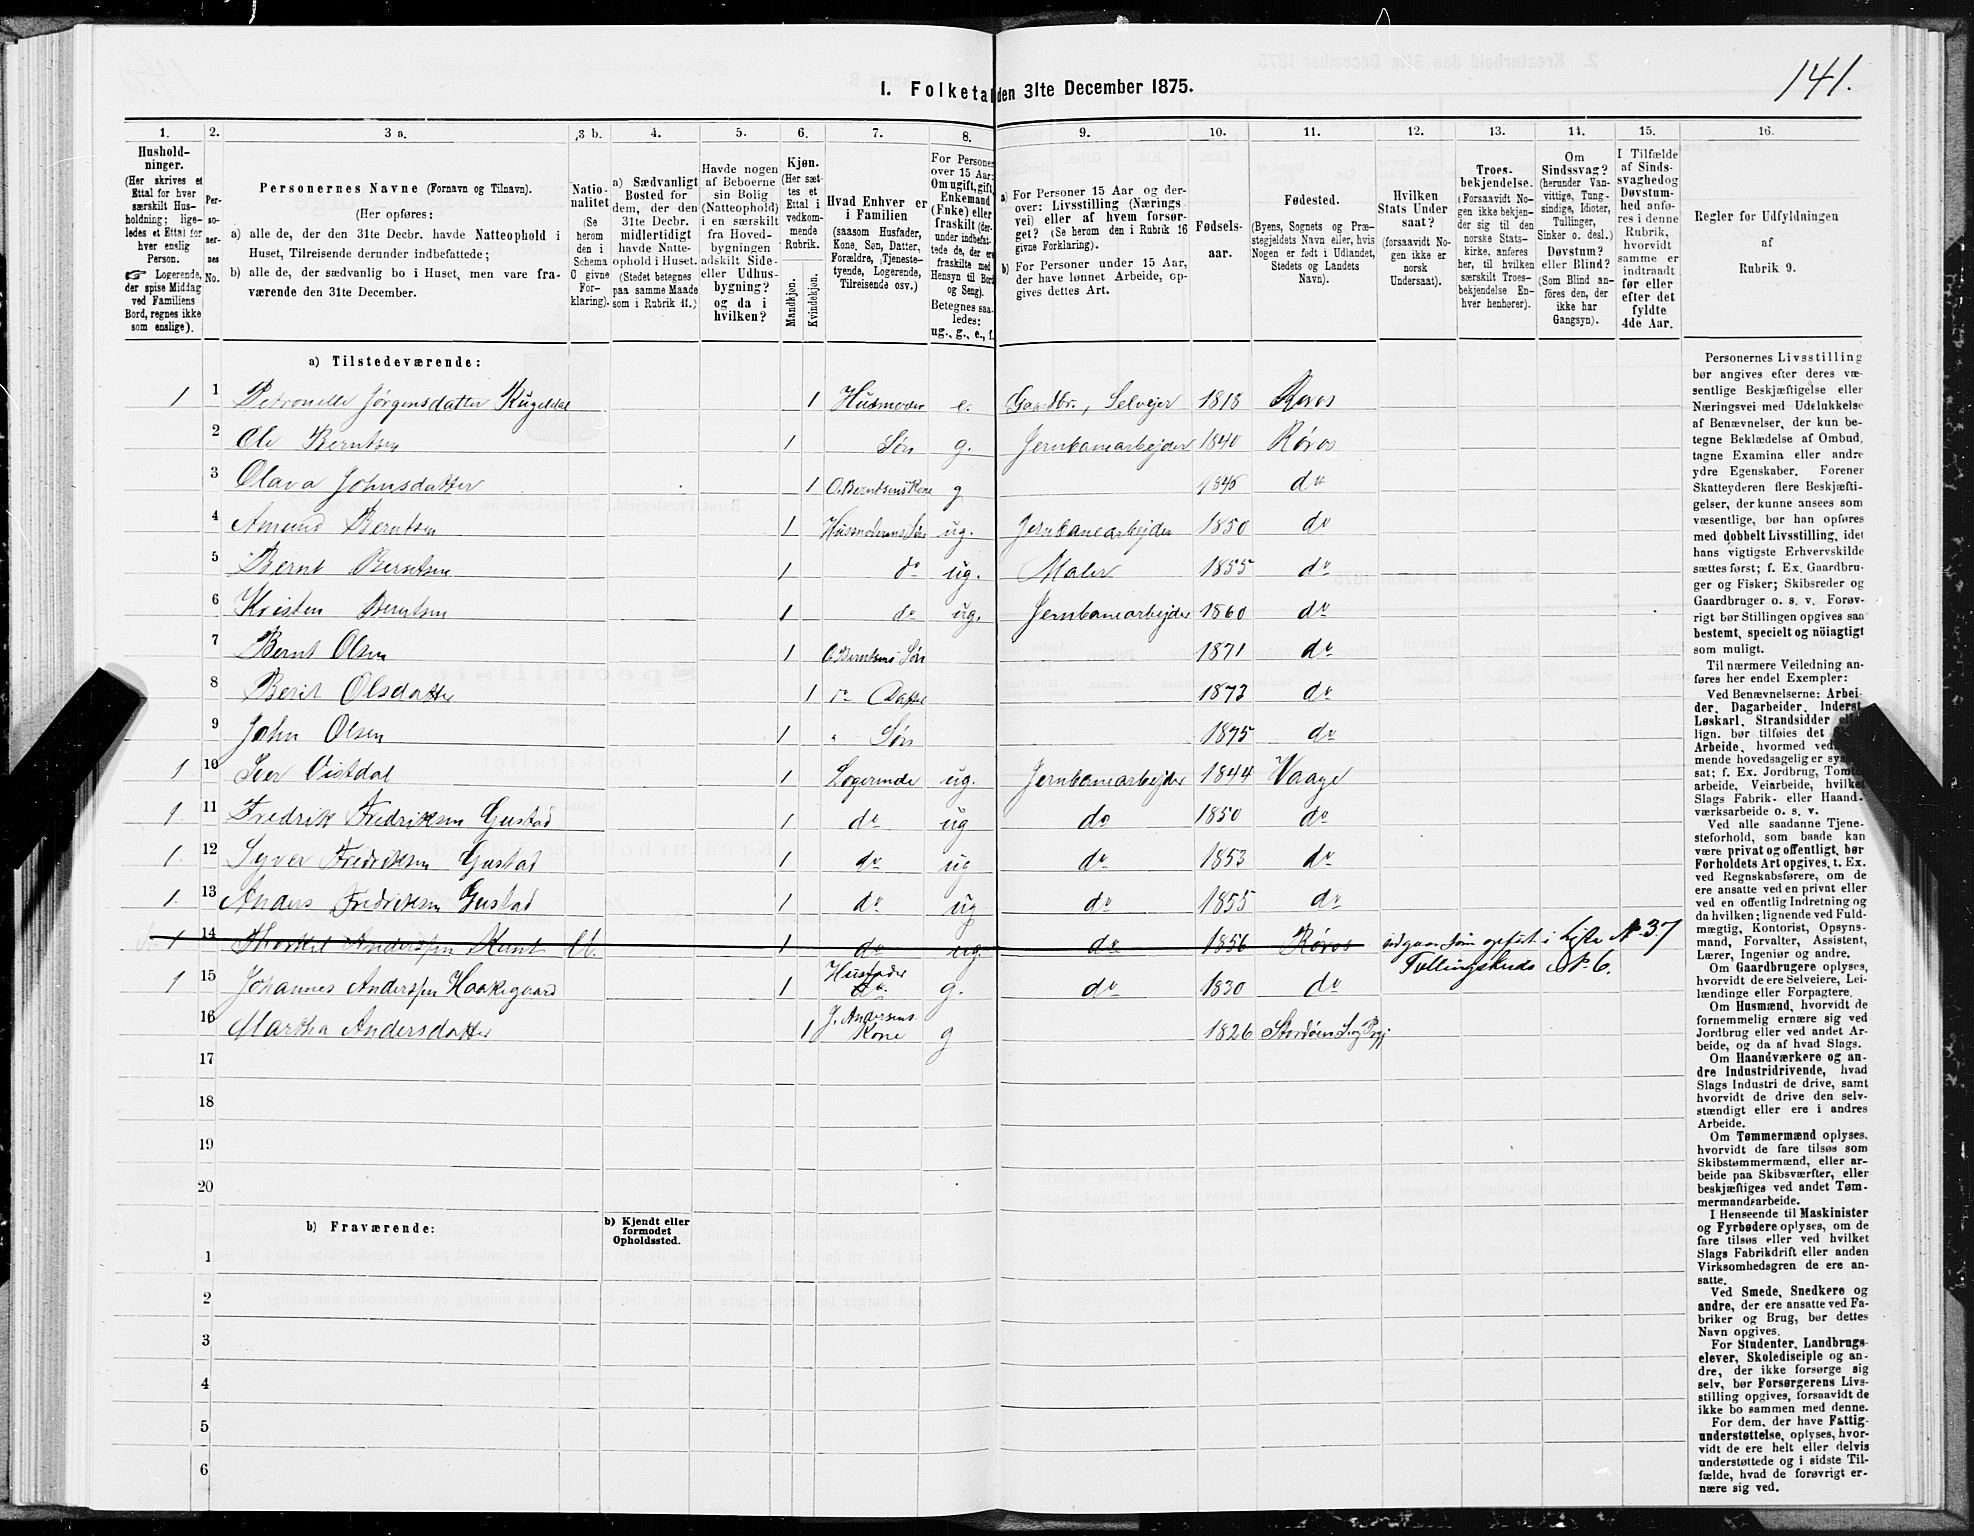 141.
1. Folketal den 31te December 1875.
1. 2. 3 a. 3 b. 4. 5. 6. 7. 8. 9. 10. 11. 12. 13. 14. 15. 16.
Hushold-
ninger.
(Her skrives et
Ettal for hver
særskilt Hus-
holdning; lige-
ledes et Ettal for
hver enslig
Person.
☞ Logerende,
der spise Middag
ved Familiens
Bord, regnes ikke
som enslige).
Per-
so-
ner-
nes
No.
Personernes Navne (Fornavn og Tilnavn).
(Her opføres:
a) alle de, der den 31te Decbr. havde Natteophold i
Huset, Tilreisende derunder indbefattede;
b) alle de, der sædvanlig bo i Huset, men vare fra-
værende den 31te December.
Natio-
nalitet
(Se
herom
den i
Schema
C givne
For-
klaring).
a) Sædvanligt
Bosted for
dem, der den
31te Decbr.
midlertidigt
havde Natte-
ophold i Huset.
(Stedet betegnes
paa samme Maade
som i Rubrik 11.)
Havde nogen
af Beboerne
sin Bolig
(Natteophold)
i en særskilt
fra Hoved-
bygningen
adskilt Side-
eller Udhus-
bygning?
og da i
hvilken?
Kjøn.
(Her sæt-
tes et
Ettal i
vedkom-
mende
Rubrik.
Mandkjøn.
Kvindekjøn.
Hvad Enhver er
i Familien
(saasom Husfader,
Kone, Søn, Datter,
Forældre, Tjeneste-
tyende, Logerende,
Tilreisende osv.)
For Personer
over 15 Aar:
Om ugift, gift,
Enkemand
(Enke) eller
fraskilt (der-
under indbefat-
tede de, der ere
fraskilte med
Hensyn til Bord
og Seng).
Betegnes saa-
ledes:
ug., g., e., f.
a) For Personer 15 Aar og der-
over: Livsstilling (Nærings-
vei) eller af hvem forsør-
get? (Se herom den i Rubrik 16
givne Forklaring).
b) For Personer under 15 Aar,
der have lønnet Arbeide, op-
gives dettes Art.
Fødsels-
aar.
Fødested.
(Byens, Sognets og Præ-
stegjeldets Navn eller, hvis
Nogen er født i Udlandet,
Stedets og Landets
Navn).
Hvilken
Stats Under-
saat?
(forsaavidt No-
gen ikke er
norsk
Undersaat).
Troes-
bekjendelse.
(Forsaavidt No-
gen ikke bekjen-
der sig til den
norske Stats-
kirke, anføres
her, til hvilken
særskilt Troes-
bekjendelse En-
hver henhører).
Om
Sindssvag?
(herunder Van-
vittige, Tung-
sindige, Idioter,
Tullinger,
Sinker o. desl.)
Døvstum?
eller Blind?
(Som Blind an-
føres den, der
ikke har
Gangsyn).
I Tilfælde
af Sinds-
svaghed og
Døvstum-
hed anfø-
res i denne
Rubrik,
hvorvidt
samme er
indtraadt
før eller
efter det
fyldte
4de Aar.
Regler for Udfyldningen
af
Rubrik 9.
a) Tilstedeværende:
1 1 Petronelle Jørgensdatter Kugeldal 1 Husmoder e. Gaardbr., Selvejer 1818 Røros
2 Ole Berntsen 1 Søn g. Jernbanearbejder 1840 Røros
3 Olava Johnsdatter 1 O. Berntsens Kone g 1845 do
4 Amund Berntsen 1 Husmoderens Søn ug. Jernbanearbejder 1850 do
5 Bernt Berntsen 1 do ug. Maler 1855 do
6 Kristen Berntsen 1 do ug. Jernbanearbejder 1860 do
7 Bernt Olsen 1 O. Berntsens Søn 1871 do
8 Berit Olsdatter 1 do Datter 1873 do
9 John Olsen 1 " Søn 1875 do
1 10 Iver Vistdal 1 Logerende ug. Jernbanearbejder 1844 Vaage
1. 11 Fredrik Fredriksen Gustad 1 do ug do 1850 do
1. 12 Syver Fredriksen Gustad 1 do ug do 1853 do
1. 13 Anders Fredriksen Gustad 1 do ug do 1855 do
1 14 Thorkel Anderssen Kant U. 1 do ug. do 1856 Røros udgaar som opført i Liste No 37
Tællingskreds No 6.
1 15 Johannes Anderssen Haakegaard 1 Husfader do g. do 1830 do
16 Martha Andersdatter 1 J. Andersens Kone g 1826
17
18
19
20
b) Fraværende:
b) Kjendt eller
formodet
Opholdssted.
1
2
3
4
5
6
Personernes Livsstilling
bør angives efter deres væ-
sentlige Beskjæftigelse eller
Næringsvei med Udelukkelse
af Benævnelser, der kun be-
tegne Beklædelse af Ombud,
tagne Examina eller andre
ydre Egenskaber. Forener
Skatteyderen flere Beskjæfti-
gelser, der kunne ansees som
væsentlige, bør han opføres
med dobbelt Livsstilling, idet
hans vigtigste Erhvervskilde
sættes først; f. Ex. Gaardbru-
ger og Fisker; Skibsreder og
Gaardbruger o. s. v. Forøv-
rigt bør Stillingen opgives saa
bestemt, specielt og nöiagtigt
som muligt.
Til nærmere Veiledning an-
føres her endel Exempler:
Ved Benævnelserne: Arbei-
der, Dagarbeider, Inderst,
Løskarl, Strandsidder eller
lign. bør tilføies det Slags
Arbeide, hvormed ved-
mende hovedsagelig er sys-
sat; f. Ex. Jordbrug, Tomte-
arbeide, Veiarbeide, hvilket
Slags Fabrik- eller Haand-
værksarbeide o. s. v.
Ved alle saadanne Tjene-
steforhold, som baade kan
være privat og offentligt, bør
Forholdets Art opgives, t. Ex.
ved Regnskabsførere, om de
ere ansatte ved en privat eller
ved en offentlig Indretning og
da hvilken; lignende ved Fuld-
mægtig, Kontorist, Opsyns-
mand, Forvalter, Assistent,
Lærer, Ingeniør og andre.
Om Gaardbrugere oplyses,
hvorvidt de ere Selveiere, Lei-
lændinge eller Forpagtere.
Om Husmænd, hvorvidt de
fornemmelig ernære sig ved
Jordbrug eller ved andet Ar-
beide, og da af hvad Slags.
Om Haandværkere og an-
dre Industridrivende, hvad
Slags Industri de drive, samt
hvorvidt de drive den selv-
stændigt eller ere i andres
Arbeide.
Om Tømmermænd oplyses,
hvorvidt de fare tilsøs som
Skibstømmermænd, eller ar-
beide paa Skibsværfter, eller
beskjæftiges ved andet Tøm-
mermandsarbeide.
I Henseende til Maskinister
og Fyrbødere oplyses, om de
fare tilsøs eller ved hvilket
Slags Fabrikdrift eller anden
Virksomhedsgren de ere an-
satte.
Ved Smede, Snedkere og
andre, der ere ansatte ved Fa-
briker og Brug, bør dettes
Navn opgives.
For Studenter, Landbrugs-
elever, Skoledisciple og an-
dre, der ikke forsørge sig
selv, bør Forsørgerens Livs-
stilling opgives, forsaavidt de
ikke bo sammen med denne.
For dem, der have Fattig-
understøttelse, oplyses, hvor-
vidt de ere helt eller delvis
understøttede og i sidste Til-
fælde, hvad de forøvrigt er-
nære sig ved.